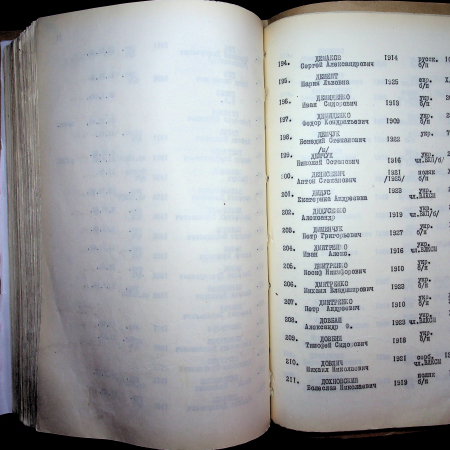 194. ДЕВАКОВ 1914 русск.
Сергей Александрович б/п
195. ДЕВЕНТ 1925 укр.
Мария Львовна б/п
196. укр.
Иван Сидорович 1918 б/п
197. укр.
Федор Кондратьевич 1909 б/п
198. ДЕМЧУК укр.
1922
/и/
199. ДЕМЧУК укр.
Николай 1916 чл.ВКП/б/
200. ДЕНИСЕВИЧ 1921 поляк
Антон Степанович /1923/ б/п
201. ДИДУС 1923 укр.
Екатерина Андреевна чл.ВЛКСМ
202. ДИДУСЕНКО укр.
Александр 1919 чл.ВКП/б/
203. укр.
Петр Григорьевич 1927 б/п
204. ДМИТРЕНКО укр.
Иван Алекс. 1916 чл.ВЛКСМ
205. ДМИТРЕНКО укр.
Иосиф Никифорович 1910 б/п
206. ДМИТРЕНКО укр.
Михаил Владимирович 1923 б/п
207. ДМИТРЕНКО укр.
Петр Андреевич 1910 б/п
208. ДОВБАН укр.
Александр 1923 чл.ВЛКСМ
209. укр.
Тимофей Сидорович 1918 б/п
210. ДОВИЧ 1921 серб.
Михаил Николаевич чл.ВЛКСМ
211. ДОХНОВСКИЙ поляк
Болеслав Николаевич 1919 б/п